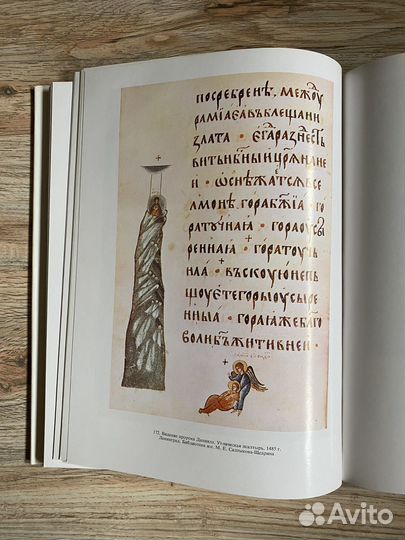 посребренѣ, межоу
рамїаеѧвъблещани
злата · єгараꙁнест
витьнбныицрѧнане
и · ѡснѣжатсѧвсе
лмонѣ · горабжїа · го
ратоучнаꙗ · гораоусы
реннаꙗ · гораточь
наꙗ · въскоуюнепь
щоуетегорыоусыре
нныꙗ · гораюжебл҃го
волибъжитивнеи ·
172. Видение пророка Даниила. Угличская псалтырь. 1485 г.
Ленинград. Библиотека им. М. Е. Салтыкова-Щедрина
Avito